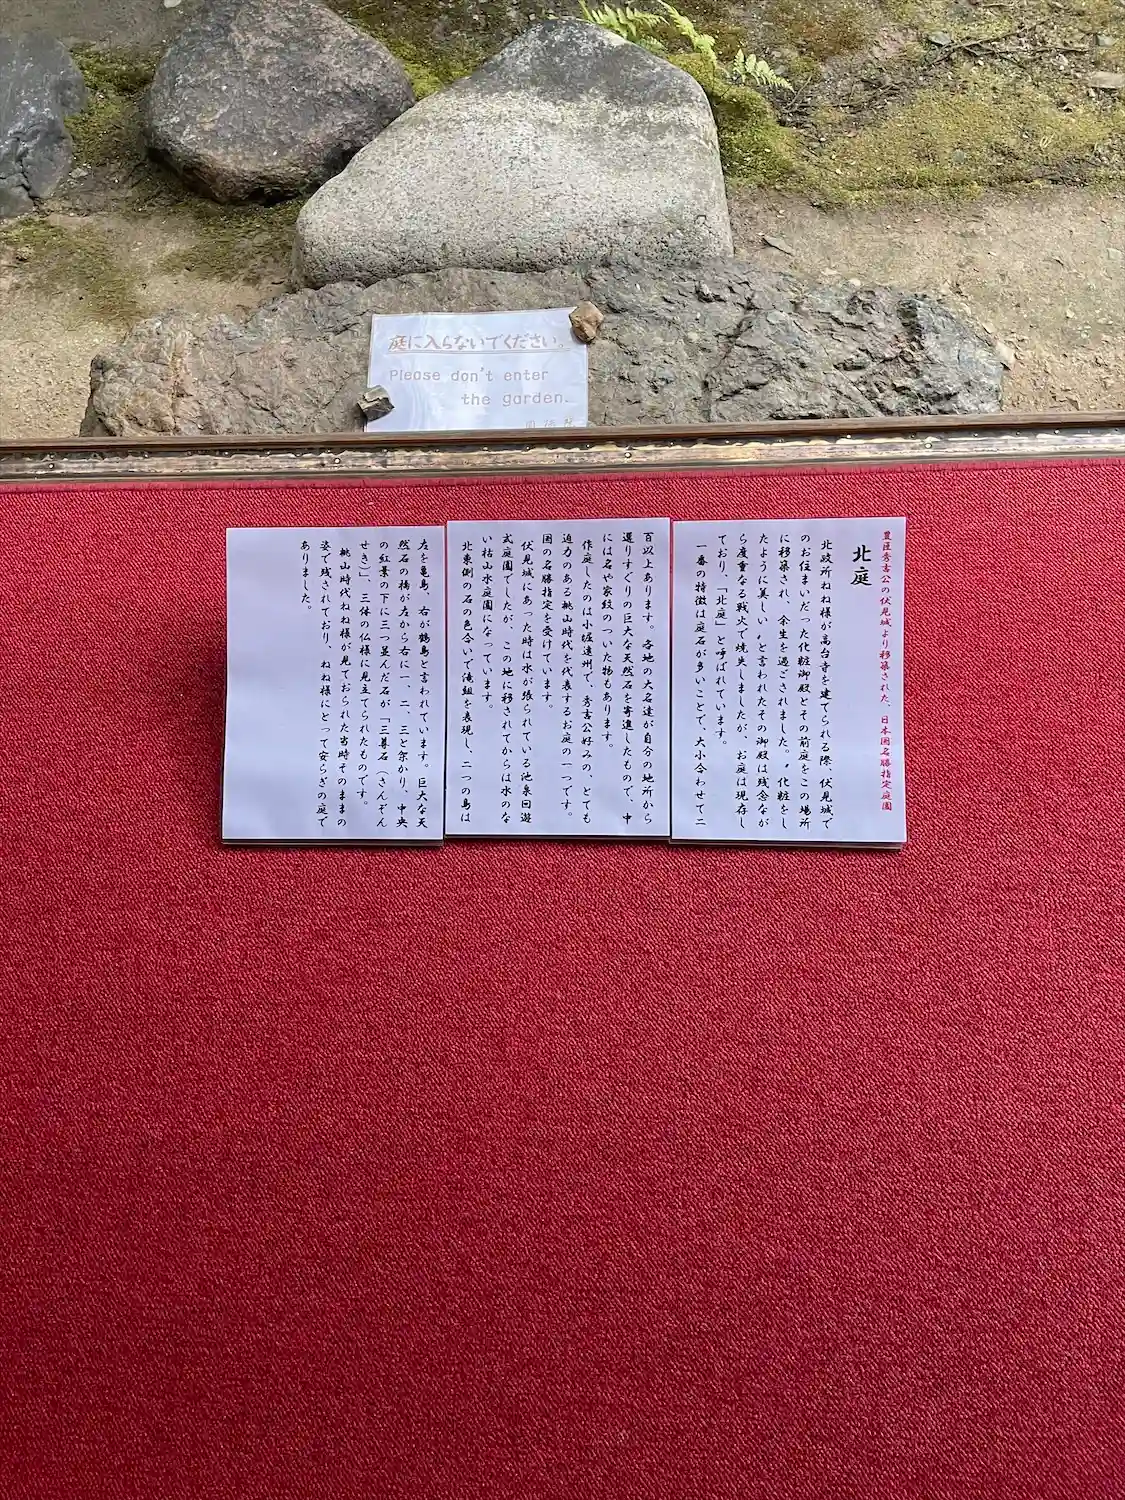 庭に入らないでください。
Please don't enter
the garden.
豊臣秀吉公の伏見城より移築された、日本国名勝指定庭園
北庭
北政所ねね様が高台寺を建てられる際、伏見城で
のお住まいだった化粧御殿とその前庭をこの場所
に移築され、余生を過ごされました。〝化粧をし
たように美しい〟と言われたその御殿は残念なが
ら度重なる戦火で焼失しましたが、お庭は現存し
ており、「北庭」と呼ばれています。
一番の特徴は庭石が多いことで、大小合わせて二
百以上あります。各地の大名達が自分の地所から
選りすぐりの巨大な天然石を寄進したもので、中
には名や家紋のついた物もあります。
作庭したのは小堀遠州で、秀吉公好みの、とても
迫力のある桃山時代を代表するお庭の一つです。
国の名勝指定を受けています。
伏見城にあった時は水が張られている池泉回遊
式庭園でしたが、この地に移されてからは水のな
い枯山水庭園になっています。
北東側の石の色合いで滝組を表現し、二つの島は
左を亀島、右が鶴島と言われています。巨大な天
然石の橋が左から右に一、二、三と架かり、中央
の紅葉の下に三つ並んだ石が「三尊石（さんぞん
せき）」、三体の仏様に見立てられたものです。
桃山時代ねね様が見ておられた当時そのままの
姿で残されており、ねね様にとって安らぎの庭で
ありました。